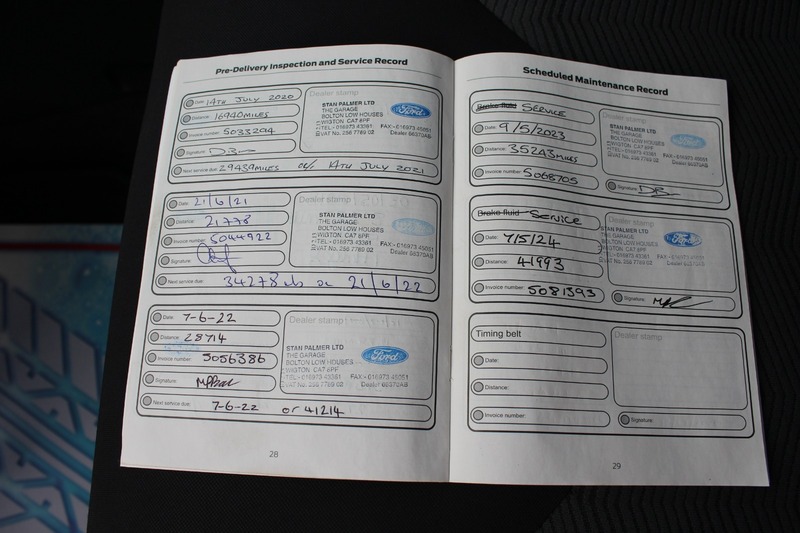 Pre-Delivery Inspection and Service Record
Date: 14TH JULY 2020
Distance: 16940MILES
Invoice number: 5033204
Signature: DB
Next service due: 29439MILES OR/ 14TH JULY 2021
Dealer stamp
STAN PALMER LTD
THE GARAGE
BOLTON LOW HOUSES
WIGTON CA7 8PF
TEL:- 016973 43361 FAX:-016973 45051
VAT No. 256 7789 02 Dealer 66370AB
Ford
Date: 21/6/21
Distance: 21778
Invoice number: 5044922
Signature:
Next service due: 34278 mls or 21/6/22
Dealer stamp
STAN PALMER LTD
THE GARAGE
BOLTON LOW HOUSES
WIGTON CA7 8PF
TEL:- 016973 43361 FAX:-016973 45051
VAT No. 256 7789 02 Dealer 66370AB
Ford
Date: 7-6-22
Distance: 28714
Invoice number: 5056386
Signature:
Next service due: 7-6-22 or 41214
Dealer stamp
STAN PALMER LTD
THE GARAGE
BOLTON LOW HOUSES
WIGTON CA7 8PF
TEL:- 016973 43361 FAX:-016973 45051
VAT No. 256 7789 02 Dealer 66370AB
Ford
28
Scheduled Maintenance Record
Brake fluid SERVICE
Date: 9/5/2023
Distance: 35243MILES
Invoice number: 5068705
Dealer stamp
STAN PALMER LTD
THE GARAGE
BOLTON LOW HOUSES
WIGTON CA7 8PF
TEL:- 016973 43361 FAX:-016973 45051
VAT No. 256 7789 02 Dealer 66370AB
Ford
Signature: DB
Brake fluid SERVICE
Date: 7/5/24
Distance: 41993
Invoice number: 5081393
Dealer stamp
STAN PALMER LTD
THE GARAGE
BOLTON LOW HOUSES
WIGTON CA7 8PF
TEL:- 016973 43361 FAX:-016973 45051
VAT No. 256 7789 02 Dealer 66370AB
Ford
Signature:
Timing belt
Date:
Distance:
Invoice number:
Dealer stamp
Signature:
29